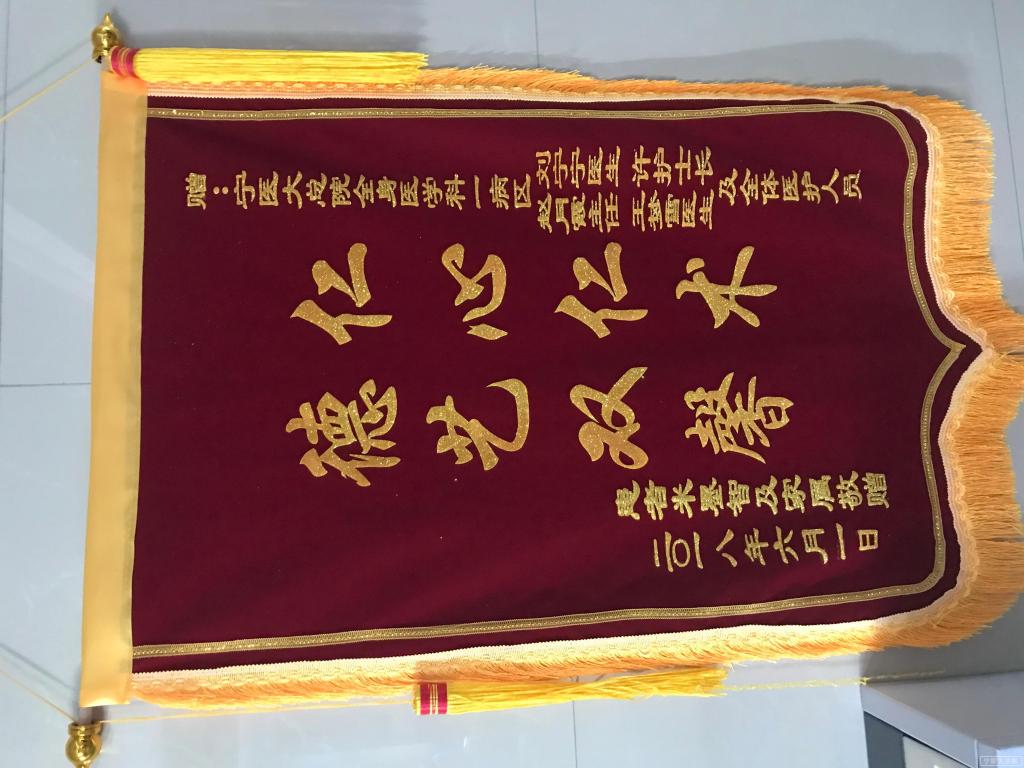 赠：宁医大总院全身医学科一病区
刘宁宁医生 许护士长
主任 王梦雷医生
及全体医护人员
仁心仁术
德艺双馨
患者米基智及家属敬赠
二〇一八年六月一日